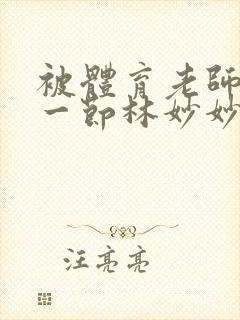 被體育老師
一節林妙妙
汪亮亮